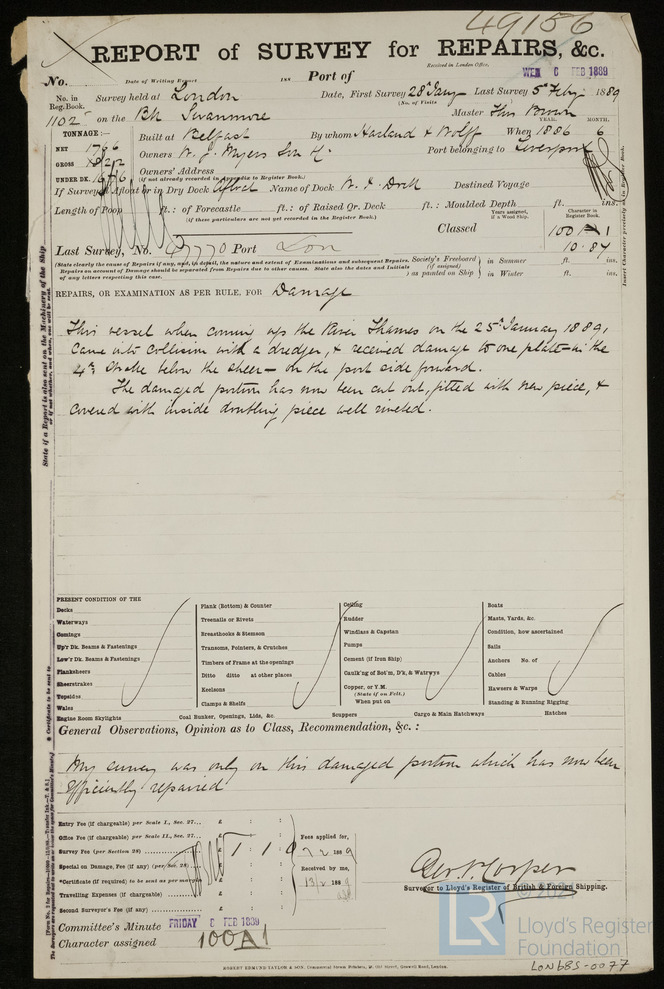 49156
REPORT of SURVEY for REPAIRS, &c.
Received in London Office,
WED. 6 FEB 1889
No.
Date of Writing Report
188
Port of
No. in Reg. Book.
Survey held at London
Date, First Survey 28th Jany
Last Survey 5th Feby 1889
(No. of Visits
1102 on the Bk Swanmore
Master Thos Brown
TONNAGE:—
YEAR. MONTH.
Built at Belfast
By whom Harland & Wolff
When 1886 6
NET 1766
Owners W. J. Myers Son & Co
Port belonging to Liverpool
GROSS 1822
Owners' Address
(if not already recorded in Appendix to Register Book.)
UNDER DK. 1676
If Surveyed Afloat or in Dry Dock Afloat
Name of Dock W. I. Dock
Destined Voyage
Length of Poop ft.: of Forecastle ft.: of Raised Qr. Deck ft.: Moulded Depth ft. ins:
(if these particulars are not yet recorded in the Register Book.)
Years assigned, if a Wood Ship.
Character in Register Book.
Classed
100 A 1
10.87
Insert Character precisely as in Register Book.
Last Survey, No. 47770 Port Lon
Society's Freeboard (if assigned) as painted on Ship
in Summer ft. ins.
in Winter ft. ins.
(State clearly the cause of Repairs if any, and, in detail, the nature and extent of Examinations and subsequent Repairs.
Repairs on account of Damage should be separated from Repairs due to other causes. State also the dates and Initials
of any letters respecting this case.
REPAIRS, OR EXAMINATION AS PER RULE, FOR Damage
This vessel when coming up the River Thames on the 25th January 1889,
came into collision with a dredger, & received damage to one plate in the
4th Strake below the sheer— on the port side forward.
The damaged portion has now been cut out, fitted with new piece, &
covered with inside doubling piece well riveted.
State if a Report is also sent on the Machinery of the Ship
PRESENT CONDITION OF THE
Decks
Waterways
Comings
Up'r Dk. Beams & Fastenings
Low'r Dk. Beams & Fastenings
Planksheers
Sheerstrakes
Topsides
Wales
Engine Room Skylights
Plank (Bottom) & Counter
Treenails or Rivets
Breasthooks & Stemson
Transoms, Pointers, & Crutches
Timbers of Frame at the openings
Ditto ditto at other places
Keelsons
Clamps & Shelfs
Coal Bunker, Openings, Lids, &c.
Ceiling
Rudder
Windlass & Capstan
Pumps
Cement (if Iron Ship)
Caulk'ng of Bot'm, D'k, & Watrwys
Copper, or Y.M.
(State if on Felt.)
When put on
Scuppers
Boats
Masts, Yards, &c.
Condition, how ascertained
Sails
Anchors No. of
Cables
Hawsers & Warps
Standing & Running Rigging
Cargo & Main Hatchways
Hatches
General Observations, Opinion as to Class, Recommendation, &c.:
My survey was only on this damaged portion which has now been
efficiently repaired
Entry Fee (if chargeable) per Scale I., Sec. 27... £
Office Fee (if chargeable) per Scale II., Sec. 27... £
Survey Fee (per Section 28) £ 1 1 0
Special on Damage, Fee (if any) (per Sec. 28) £
*Certificate (if required) to be sent as per margin £
Travelling Expenses (if chargeable) £
Second Surveyor's Fee (if any) £
Fees applied for,
7 2 1889
Received by me,
13/2 188
Surveyor to Lloyd's Register of British & Foreign Shipping.
Committee's Minute FRIDAY 8 FEB 1889
Character assigned 100A1
LR
© 2021
Lloyd's Register
Foundation
LON685-0077